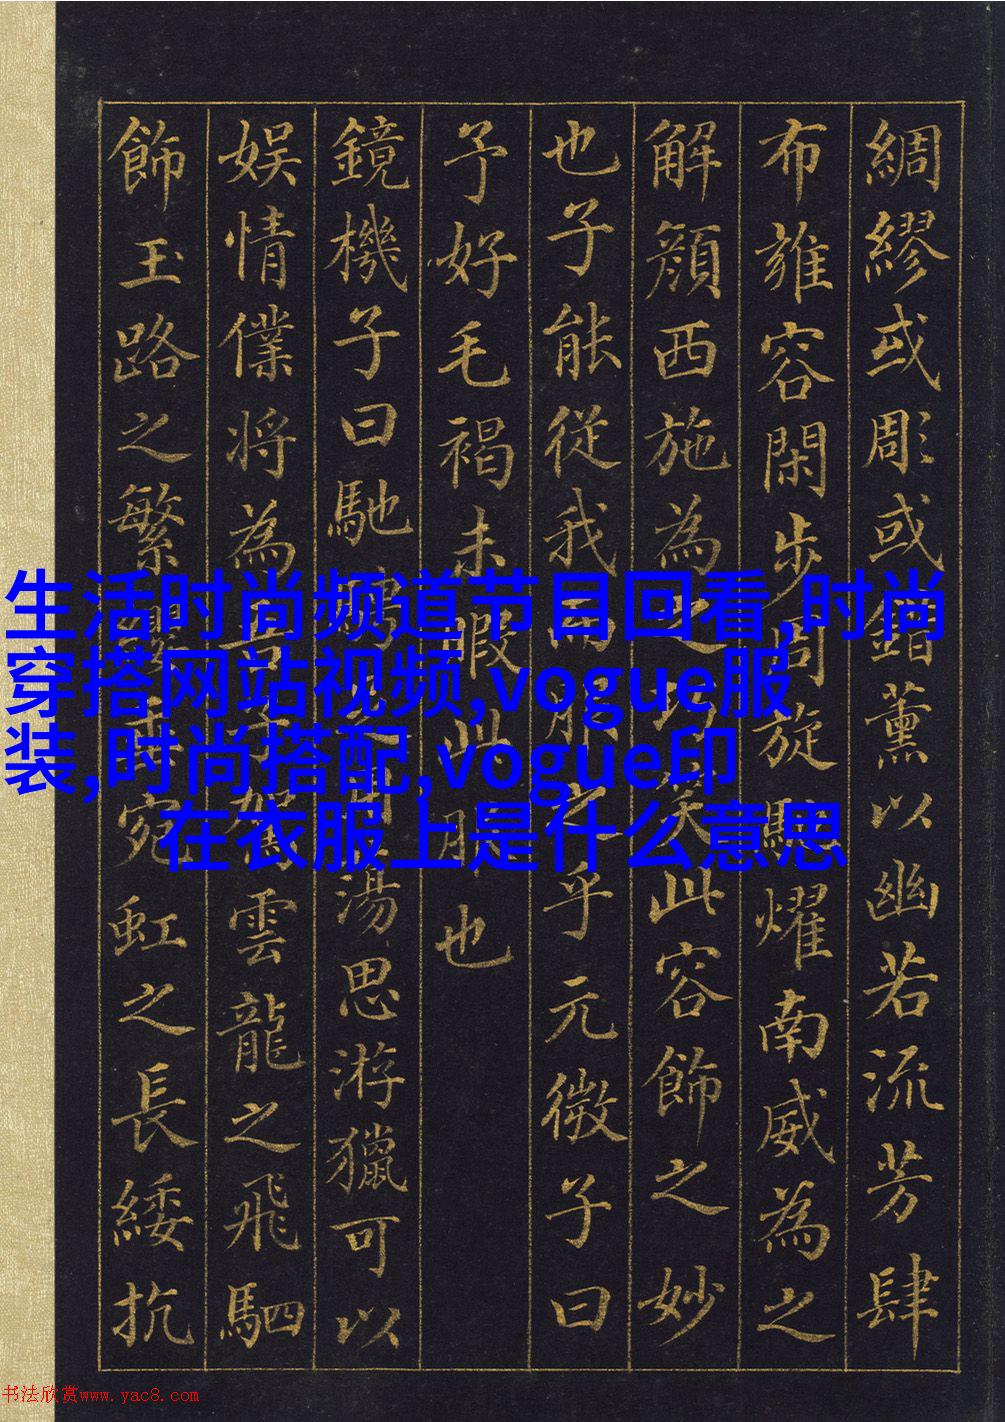 綢繆或彫或錯薰以幽若流芳肆
布雍容閑步周旋馳耀南威為之
解顏西施為之笑此容飾之妙
也子能從我而服之乎元微子曰
予好毛褐未暇此服也
鏡機子曰馳蕩思游獵可以
娛情僕將為子駕雲龍之飛駟
飾玉路之繁宛虹之長緌抗
生活时尚频道节目回看,时尚
穿搭网站视频,vogue服
装,时尚搭配,vogue印
在衣服上是什么意思
书法欣赏www.yac8.com